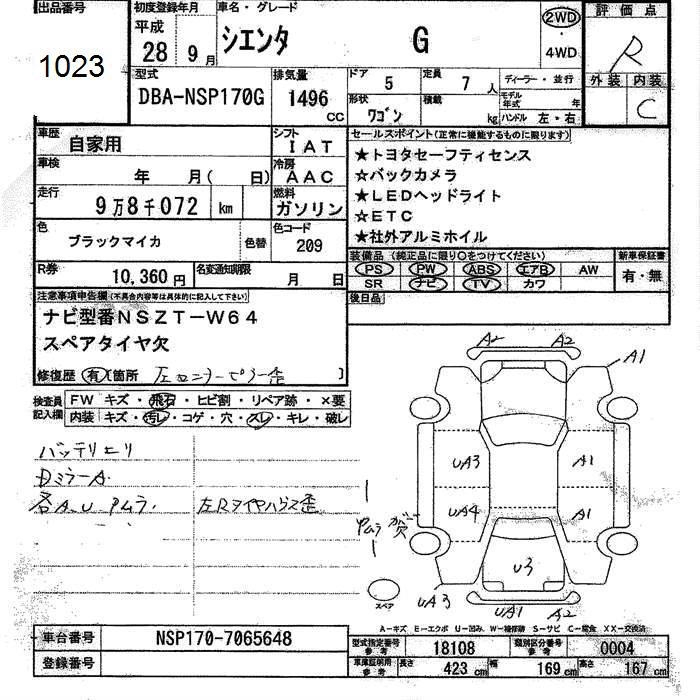 出品番号
1023
初度登録年月
平成
28年9月
車名・グレード
シエンタ G
2WD
・
4WD
評価点
R
外装 内装
C
型式
DBA-NSP170G
排気量
1496
cc
ドア 5
定員 7人
形状 ワゴン
積載 kg
ディーラー・並行
モデル年式 年
ハンドル 左・右
車歴
自家用
シフト
IAT
車検
年 月( 日)
冷房
AAC
走行
9万8千072 km
燃料
ガソリン
色
ブラックマイカ
色替
色コード
209
R券
10,360円
名変通知期限
月 日
セールスポイント(正常に機能するものに限ります)
★トヨタセーフティセンス
☆バックカメラ
★LEDヘッドライト
☆ETC
★社外アルミホイル
装備品(純正品に限り○をつけてください)
PS PW ABS エアB AW
SR ナビ TV カワ
新車保証書
有・無
後日品
注意事項申告欄(不具合内容等は具体的に記入して下さい)
ナビ型番NSZT-W64
スペアタイヤ欠
修復歴 有[箇所 ]
検査員
記入欄
FW キズ・飛石・ヒビ割・リペア跡・×要
内装 キズ・汚レ・コゲ・穴・スレ・キレ・破レ
バッテリエリ
DミラーA.
各A.U.アムラ.
左Rタイヤハウス歪
A2 A2
A1
UA3 A1
UA4 A1
アムラ
U3
スペア
UA3 UA1 A2
A-キズ E-エクボ U-凹み W-補修跡 S-サビ C-腐食 XX-交換済
車台番号
NSP170-7065648
登録番号
型式指定番号
参考
18108
類別区分番号
参考
0004
車庫証明用
参考
長さ 423 cm
幅 169 cm
高さ 167 cm